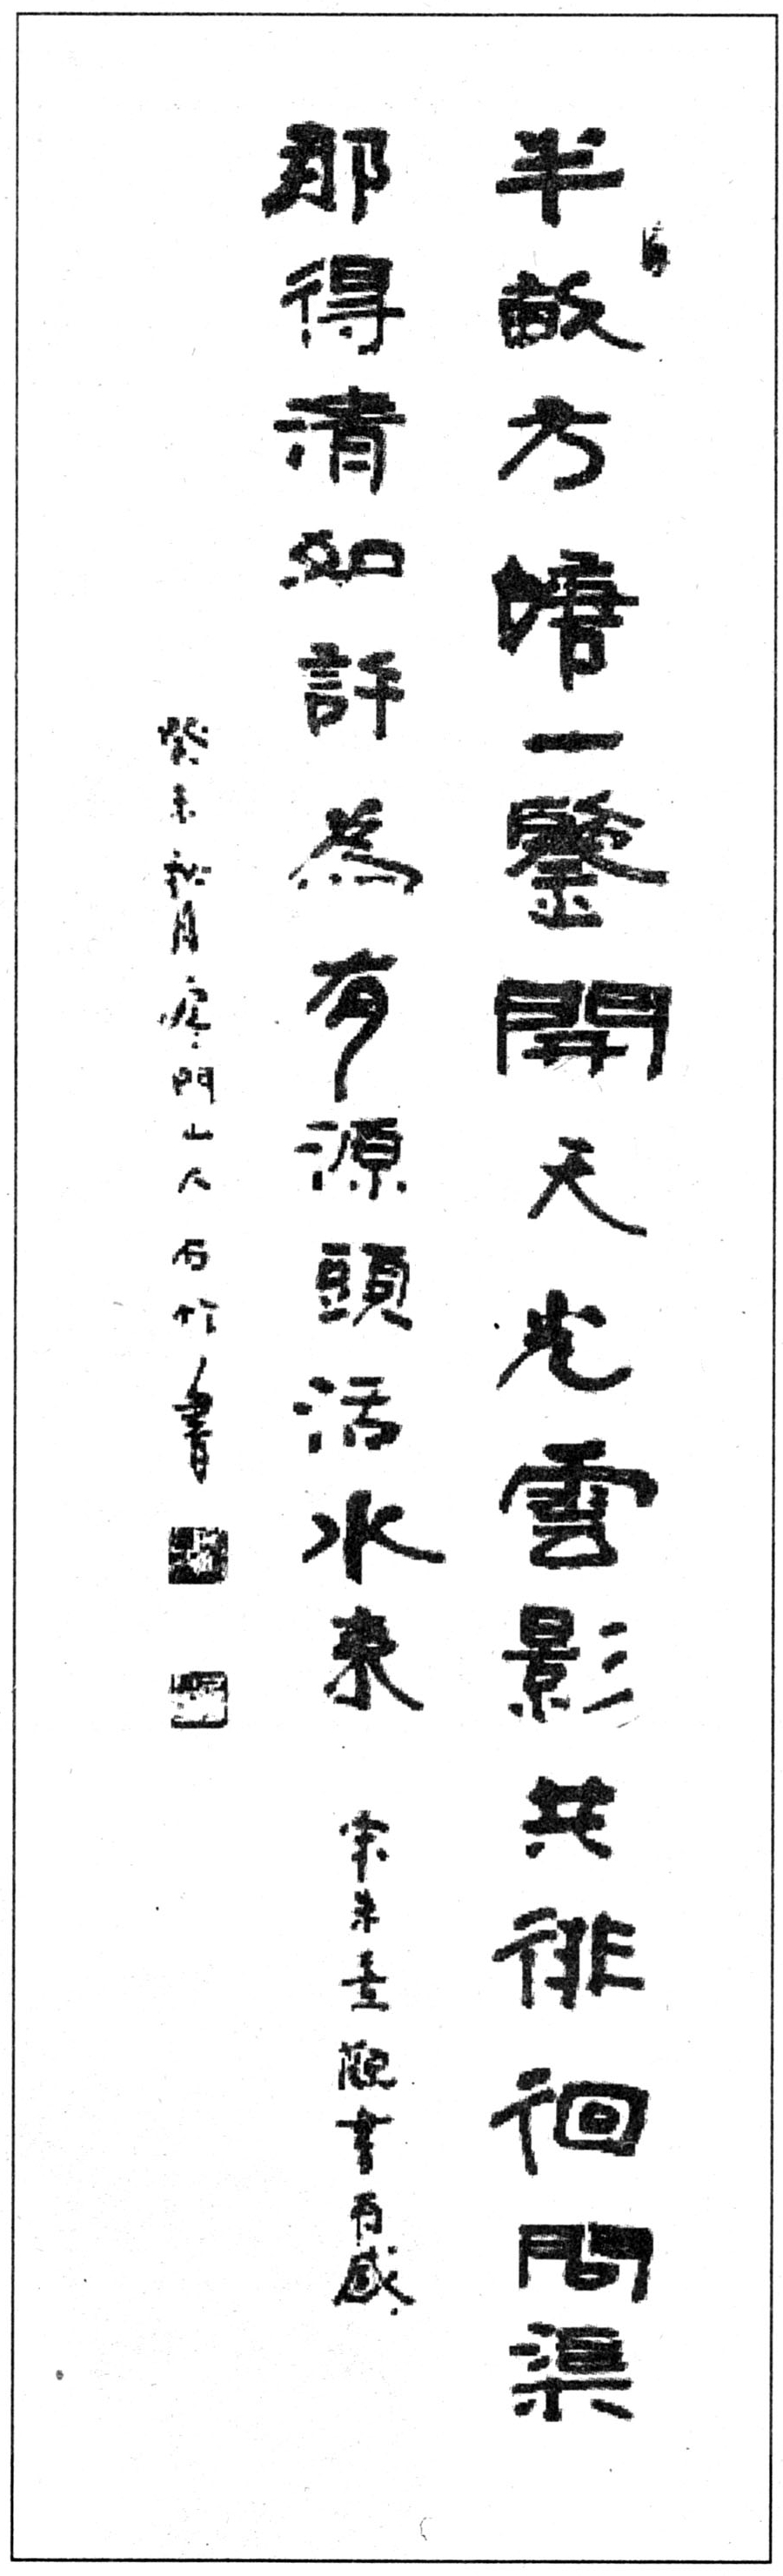 半畝方塘一鑒開天光雲影共徘徊問渠
那得清如許為有源頭活水來 宋朱熹觀書有感
癸未秋月門山人石竹書